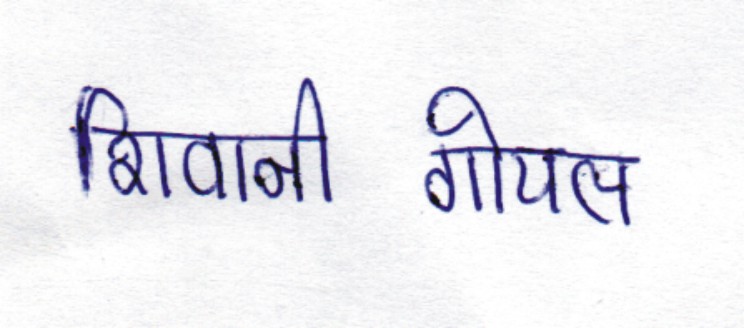 शिवानी गोयल